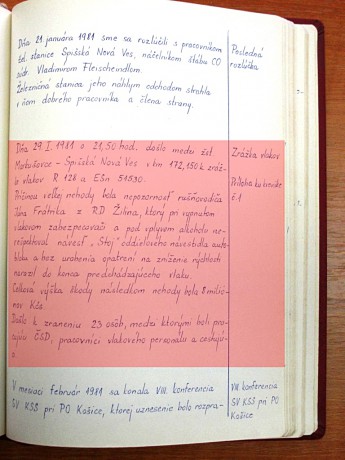 Dňa 21. januára 1981 sme sa rozlúčili s pracovníkom
žel. stanice Spišská Nová Ves, náčelníkom štábu CO
súdr. Vladimírom Fleischeindlom.
Železničná stanica jeho náhlym odchodom stratila
v ňom dobrého pracovníka a člena strany.
Posledná
rozlúčka
Dňa 29. I. 1981 o 21,50 hod. došlo medzi žst.
Markušovce - Spišská Nová Ves v km 172,150 k zráž-
ke vlakov R 128 a ESn 51530.
Príčinou veľkej nehody bola nepozornosť rušňovodiča
Jána Frátrika z RD Žilina, ktorý pri vypnutom
vlakovom zabezpečovači a pod vplyvom alkoholu ne-
rešpektoval návesť „Stoj" oddielového návestidla auto-
bloku a bez urobenia opatrení na zníženie rýchlosti
narazil do konca predchádzajúceho vlaku.
Celková výška škody následkom nehody bola 8 milió-
nov Kčs.
Došlo k zraneniu 23 osôb, medzi ktorými boli pro-
dujou ČSD, pracovníci vlakového personálu a cestujú-
Zrážka vlakov
Príloha ku kronike
č. 1
V mesiaci február 1981 sa konala VIII. konferencia
SV KSS pri PO Košice, ktorej uznesenie bolo rozpra-
VIII. konferencia
SV KSS pri PO
Košice